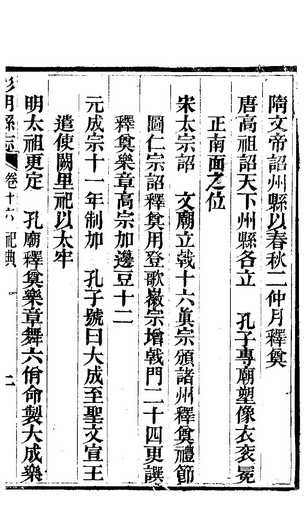 隋文帝詔州縣以春秋二仲月釋奠
唐高祖詔天下州縣各立　孔子專廟塑像衣袞冕
正南面之位
宋太宗詔　文廟立戟十六眞宗頒諸州釋奠禮節
圖仁宗詔釋奠用登歌徽宗增戟門二十四更譔
釋奠樂章高宗加籩豆十二
元成宗十一年制加　孔子號曰大成至聖文宣王
遣使闕里祀以太牢
明太祖更定　孔廟釋奠樂章舞六佾命製大成樂
明縣志
卷十六　祀典
二